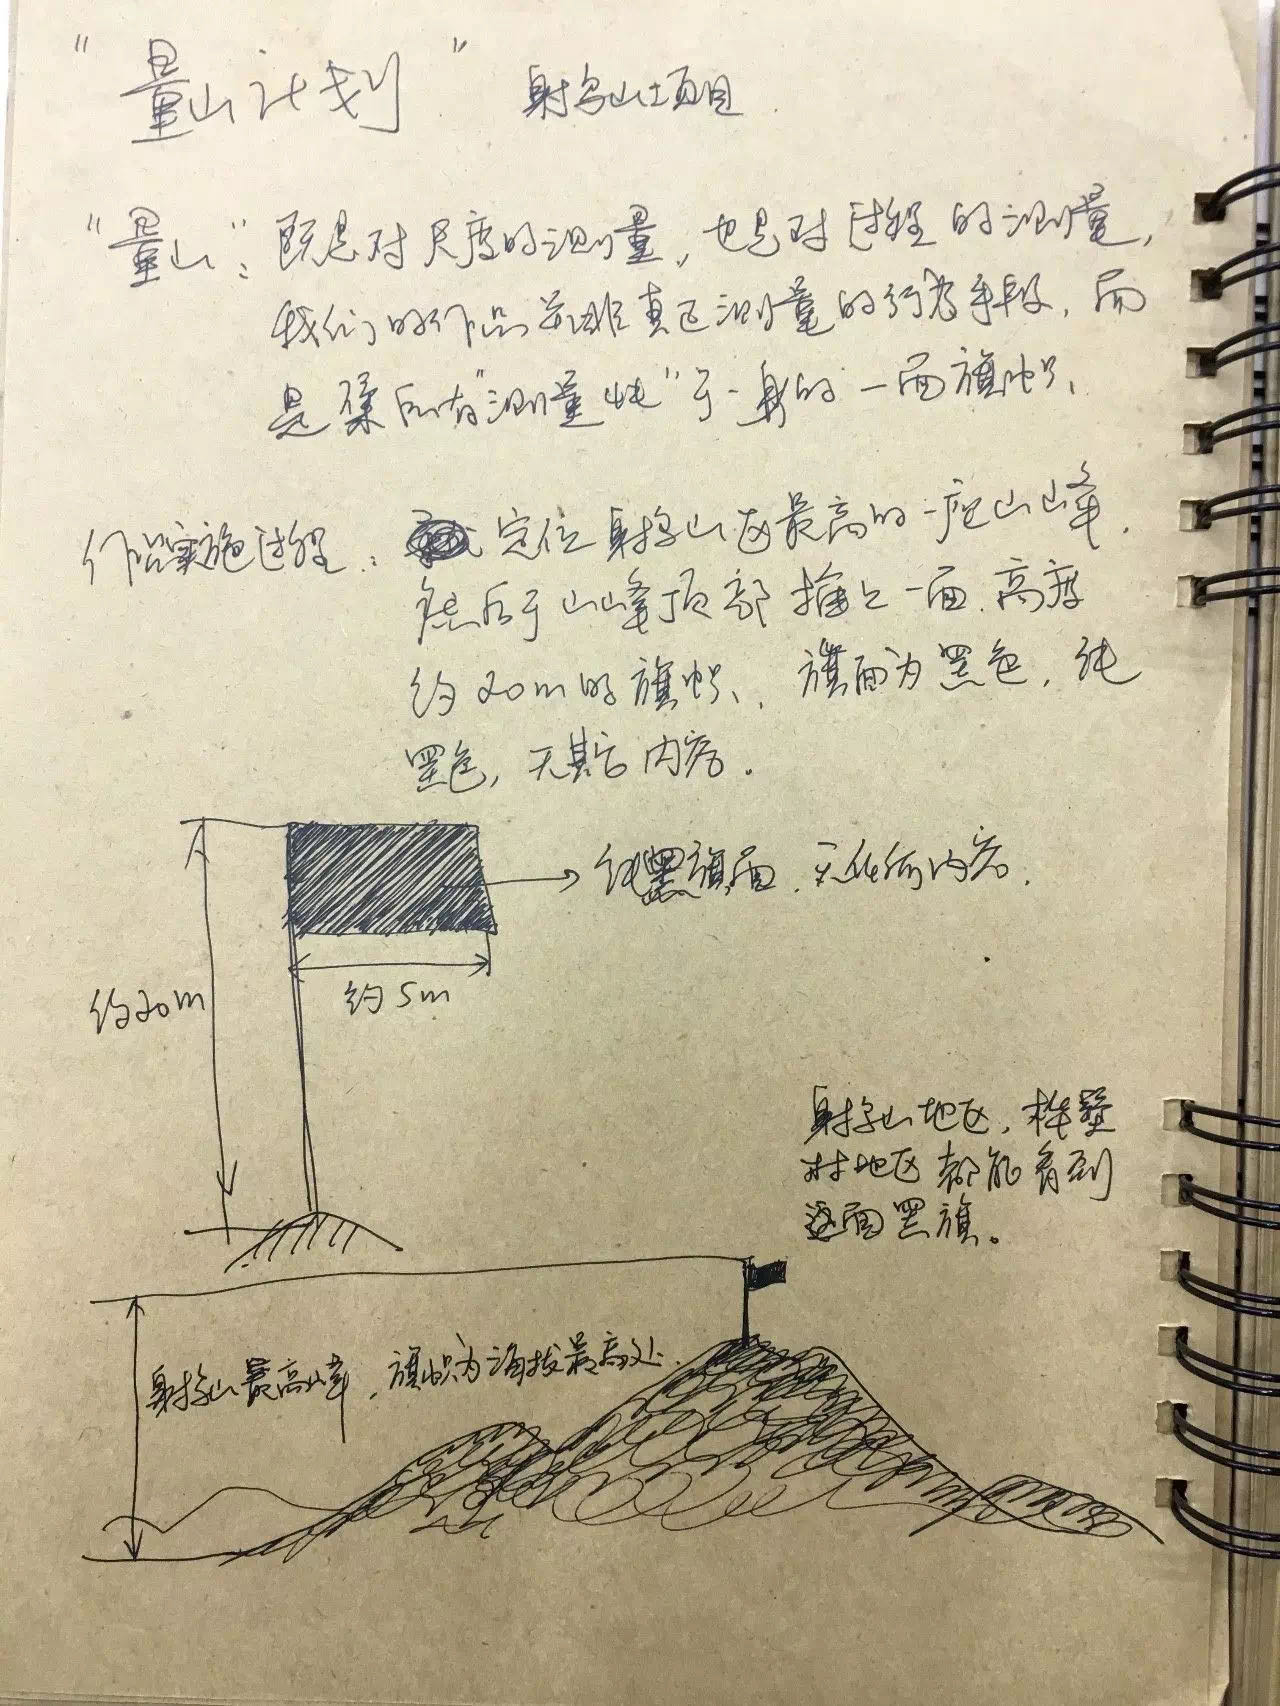 “量山计划” 射字山土项目.
“量山”：既是对尺度的测量，也是对过程的测量，
我们的作品并非真正测量的行为手段，而
是集所有“测量性”于一身的一面旗帜、
作品实施过程： 定位射字山区最高的一座山峰.
然后于山峰顶部插上一面、高度
约20m的旗帜、，旗面为黑色，纯
黑色，无其它内容.
纯黑旗面，无任何内容.
约20m
约5m
射字山地区，
村地区都能看到
这面黑旗。
射字山最高峰，旗帜为海拔最高处.